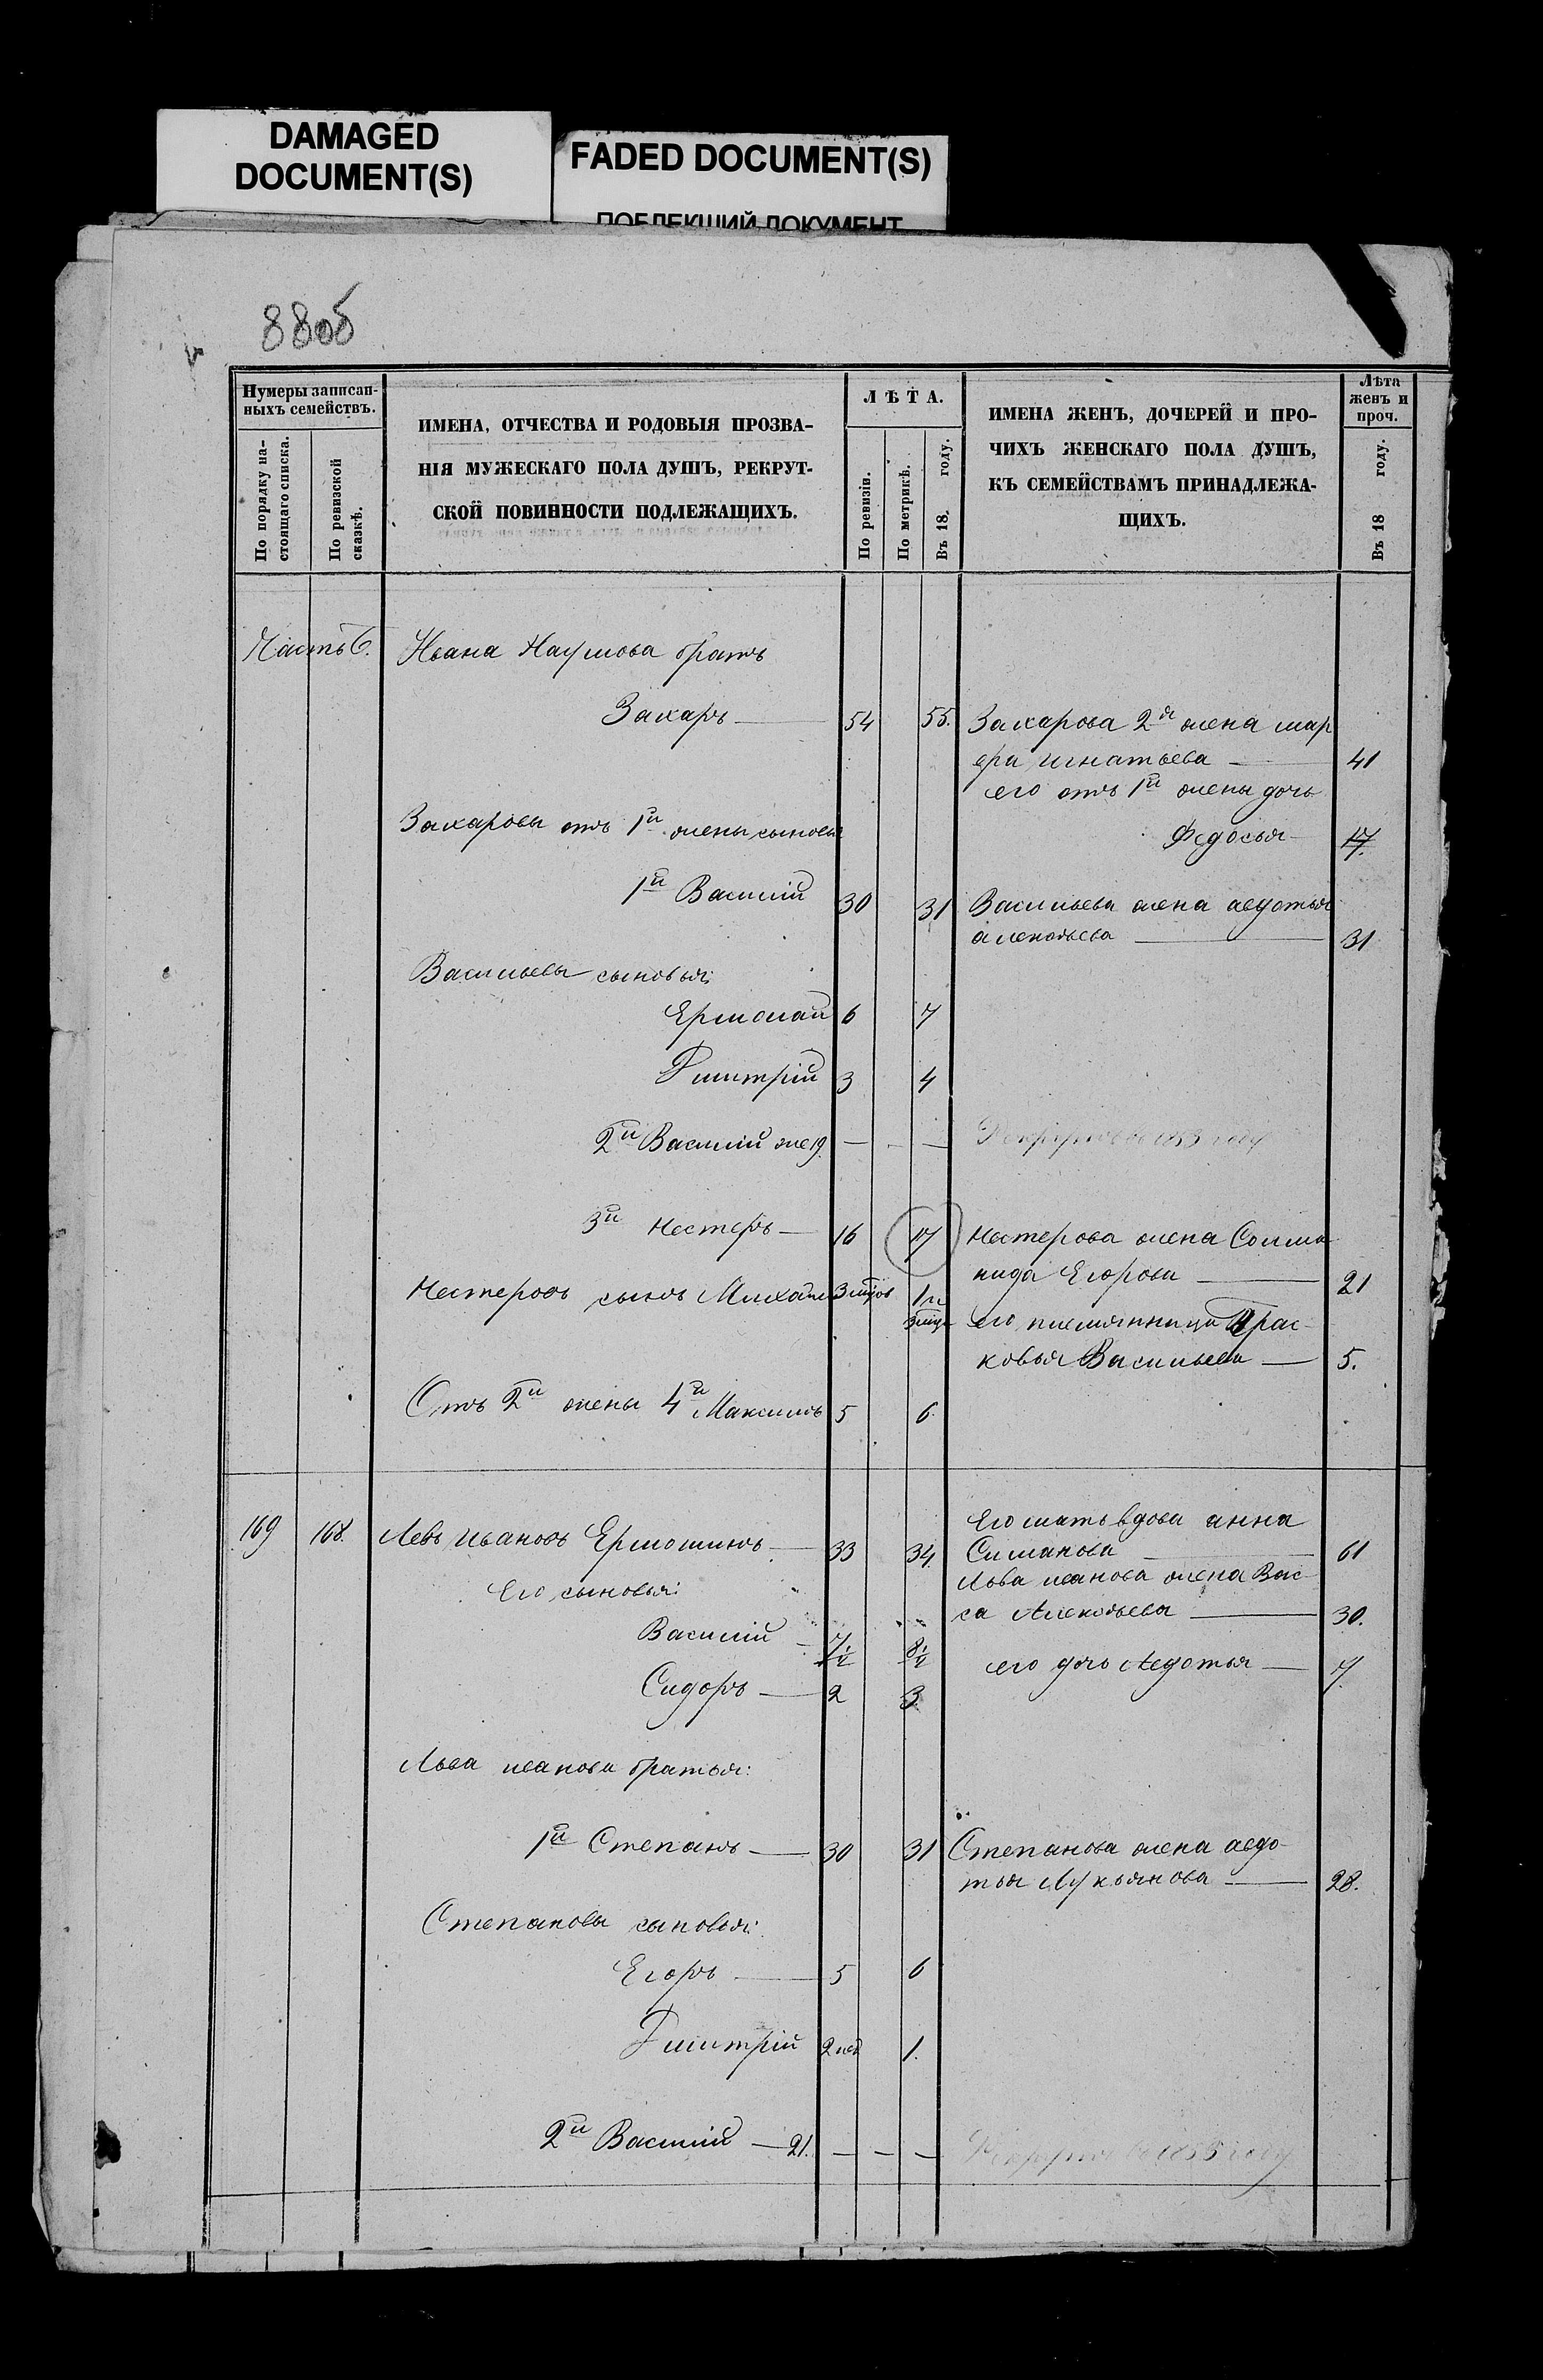 DAMAGED
DOCUMENT(S)
FADED DOCUMENT(S)
ПОБЛЕКШИЙ ДОКУМЕНТ
88об
Нумеры записан-
ныхъ семействъ.
По порядку на-
стоящаго списка.
По ревизской
сказкѣ.
ИМЕНА, ОТЧЕСТВА И РОДОВЫЯ ПРОЗВА-
НІЯ МУЖЕСКАГО ПОЛА ДУШЪ, РЕКРУТ-
СКОЙ ПОВИННОСТИ ПОДЛЕЖАЩИХЪ.
ЛѢТА.
По ревизіи.
По метрикѣ.
Въ 18 году.
ИМЕНА ЖЕНЪ, ДОЧЕРЕЙ И ПРО-
ЧИХЪ ЖЕНСКАГО ПОЛА ДУШЪ,
КЪ СЕМЕЙСТВАМЪ ПРИНАДЛЕЖА-
ЩИХЪ.
Лѣта
женъ и
проч.
Въ 18 году.
Часть 6. Ивана Наумова братъ
Захаръ — 54 55. Захарова 2я жена мар
фа игнатьева — 41
его отъ 1й жены дочь
Захаровы отъ 1й жены сыновья
Федосья — 17.
1й Василій 30 31 Васильева жена авдотья
алексѣева — 31
Васильевы сыновья:
Ермолай 6 7
Дмитрій 3 4
2й Василій же 19. — — — Рекрутъ въ 1855 году
3й Нестеръ — 16 17 Нестерова жена Соломо
нида Егорова — 21
Нестеровъ сынъ Михайла 3 мцов 1 г.
3 мца его племянница Прас-
ковья Васильева — 5.
Отъ 2й жены 4й Максимъ 5 6.
169 168. Левъ Ивановъ Ермошинъ — 33 34.
Его мать вдова анна
Симанова — 61
Льва иванова жена Вас-
са Алексѣева — 30.
Его сыновья:
Василій — 7 1/2 8 1/2
его дочь Авдотья — 7.
Сидоръ — 2 3.
Льва иванова братья:
1й Степанъ — 30 31 Степанова жена авдо-
тья Лукьянова — 28.
Степановы сыновья:
Егоръ — 5 6
Дмитрій 2 нед 1.
2й Василій — 21. — — — Рекрутъ въ 1855 году